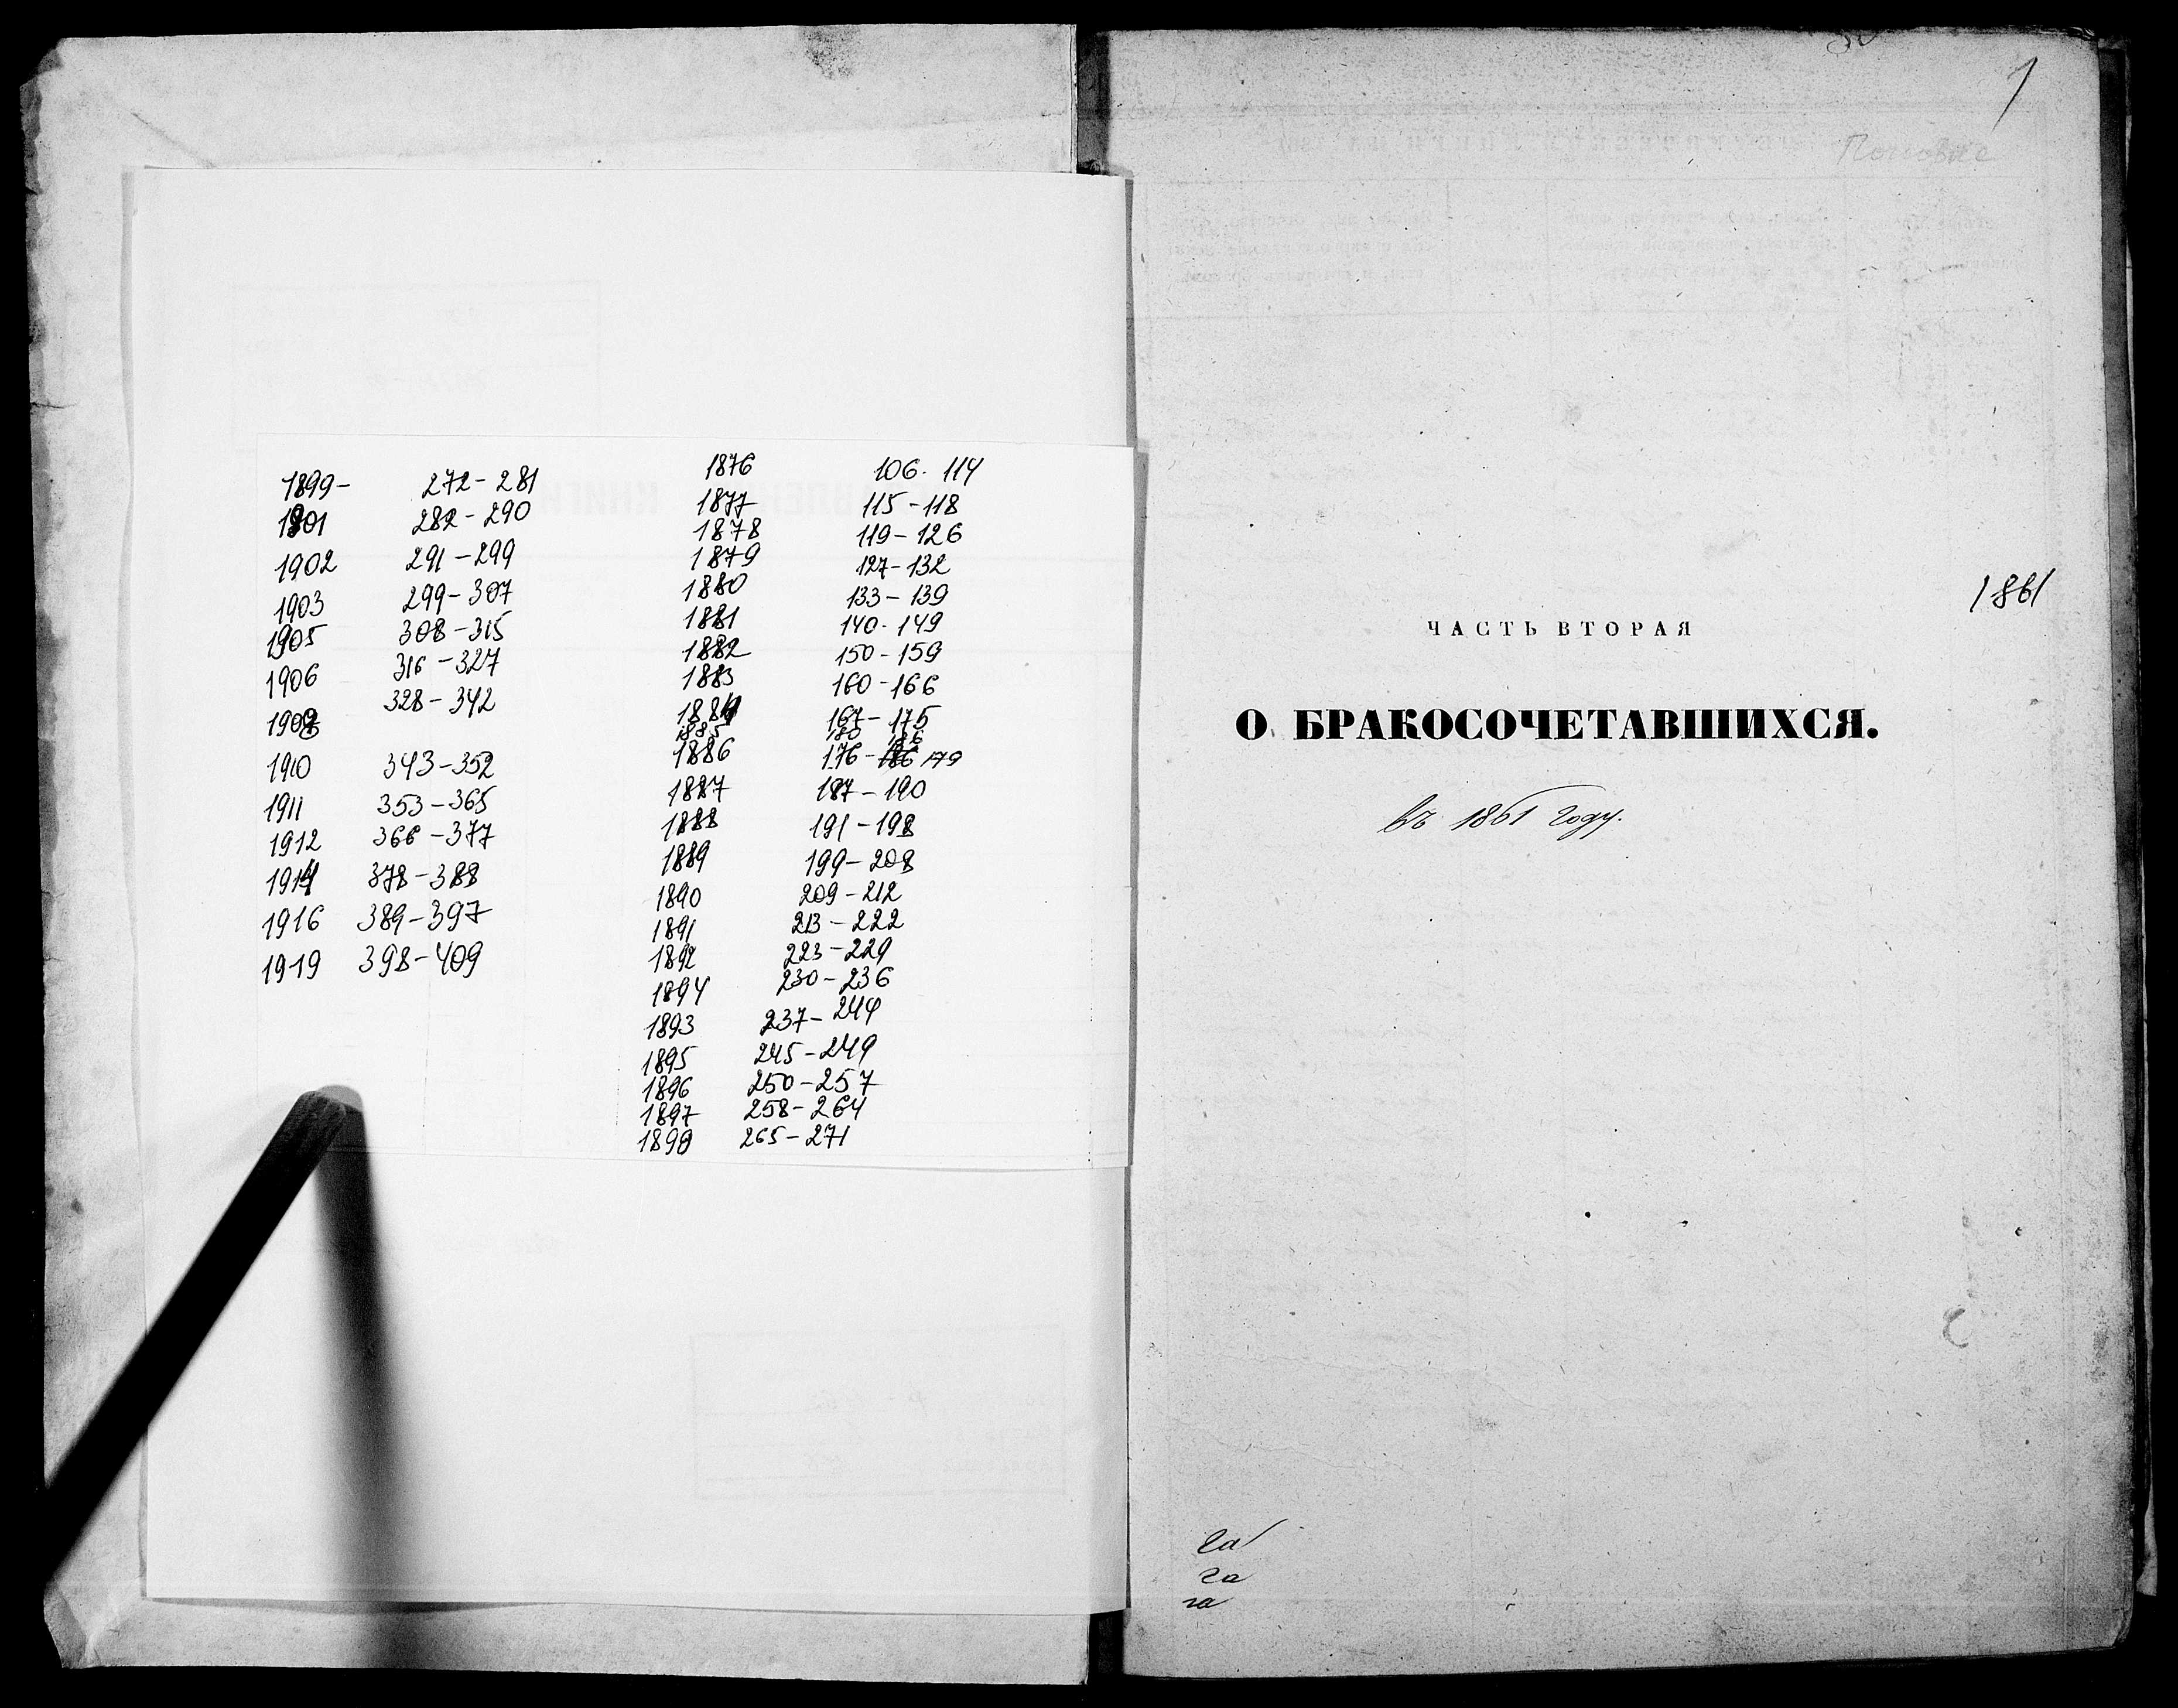 1899- 272-281
1901 282-290
1902 291-299
1903 299-307
1905 308-315
1906 316-327
328-342
1910 343-352
1911 353-365
1912 366-377
1914 378-388
1916 389-397
1919 398-409
1876 106-114
1877 115-118
1878 119-126
1879 127-132
1880 133-139
1881 140-149
1882 150-159
1883 160-166
1884 167-175
1885 180 186
1886 176- 179
1887 187-190
1888 191-198
1889 199-208
1890 209-212
1891 213-222
1892 223-229
1894 230-236
1893 237-244
1895 245-249
1896 250-257
1897 258-264
1898 265-271
1
1861
ЧАСТЬ ВТОРАЯ
О БРАКОСОЧЕТАВШИХСЯ.
въ 1861 году.
га
га
га